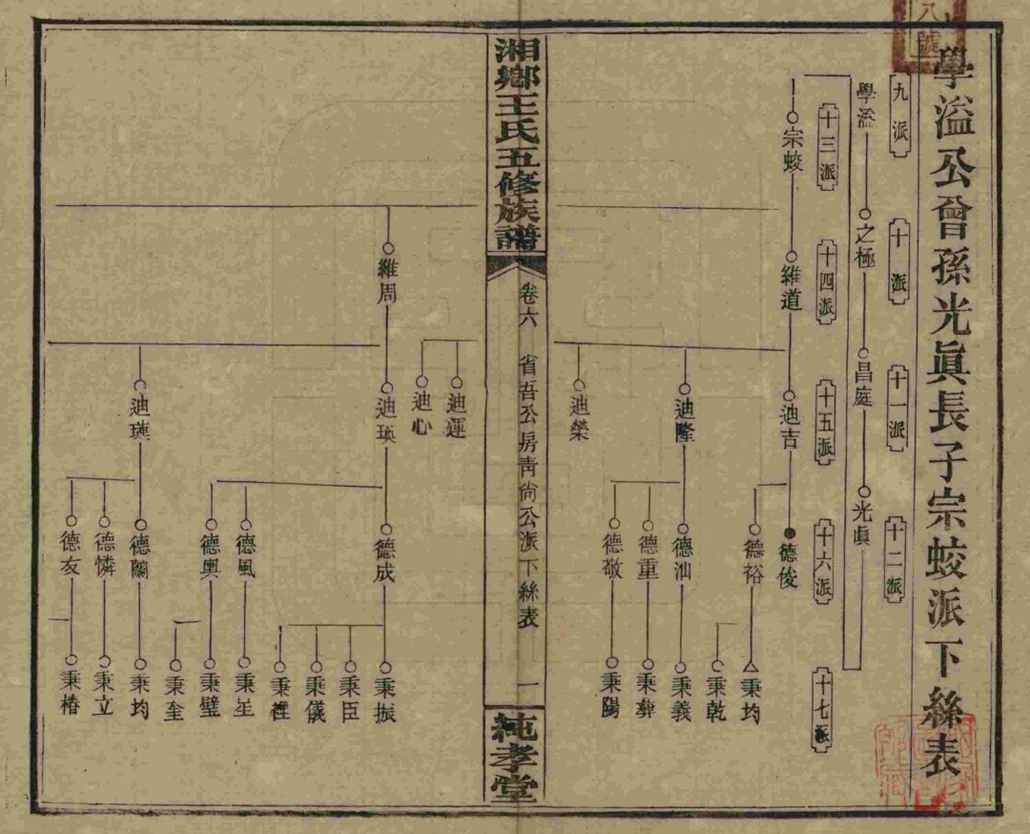 學溢公曾孫光眞長子宗蛟派下絲表
九派
十派
十一派
十二派
學溢
之極
昌庭
光眞
十三派
十四派
十五派
十六派
十七派
宗蛟
維道
迪吉
德俊
德裕
秉均
秉乾
迪隆
德汕
秉義
德重
秉彝
德敬
秉陽
迪榮
湘鄉王氏五修族譜
卷六
省吾公房青尚公派下絲表
一
純孝堂
迪運
迪心
維周
迪瑛
德成
秉振
秉臣
秉儀
秉裡
德風
秉笙
德輿
秉璧
秉奎
迪璉
德蘭
秉均
德憐
秉立
德友
秉椿